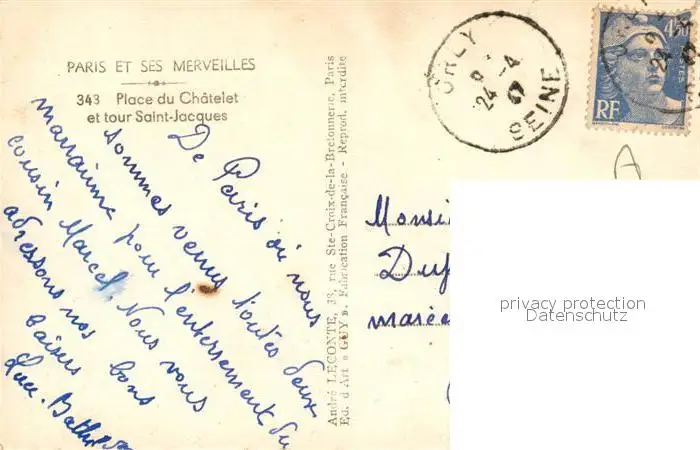 PARIS ET SES MERVEILLES
343 Place du Châtelet
et tour Saint-Jacques
De Paris où nous
sommes venus toutes deux
marraine pour l'enterrement du
cousin Marcel. Nous vous
adressons nos bons
baisers
Luce.
André LECONTE, 38, rue Ste-Croix-de-la-Bretonnerie, Paris
Ed. d'Art « GUY ». Fabrication Française - Reprod. interdite
ORLY
24 -4
SEINE
RF
Monsi
Duf
maréc
privacy protection
Datenschutz